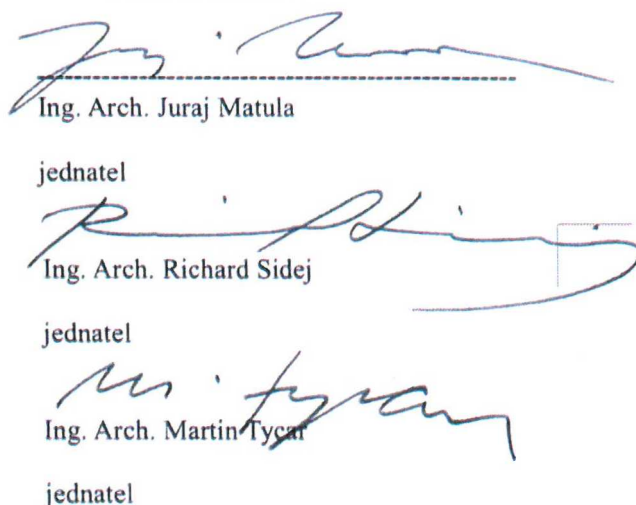 Ing. Arch. Juraj Matula
jednatel
Ing. Arch. Richard Sidej
jednatel
Ing. Arch. Martin Tycar
jednatel